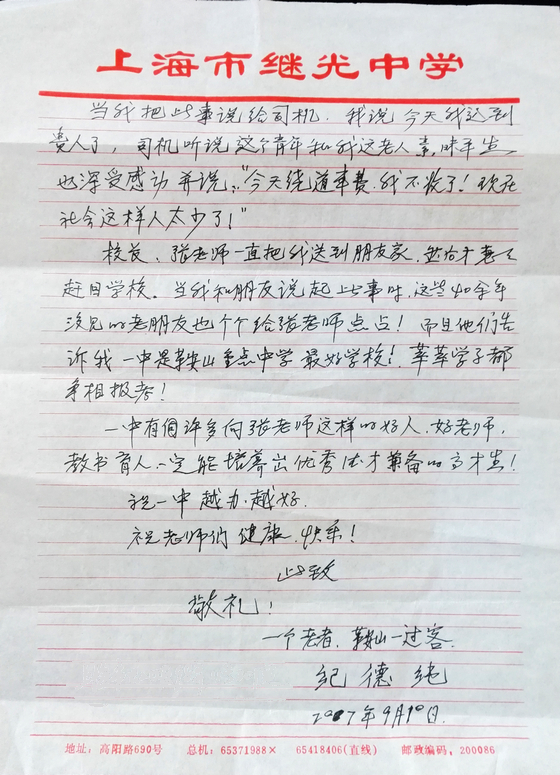 上海市继光中学
当我把此事说给司机，我说今天我遇到
贵人了，司机听说这个青年和我这老人素昧平生，
也深受感动并说："今天绕道车费，我不收了！现在
社会这样人太少了！"
校长、张老师一直把我送到朋友家，然后才
赶回学校。当我和朋友说起此事时，这些40余年
没见的老朋友也个个给张老师点点！而且他们告
诉我一中是鞍山重点中学最好学校！莘莘学子都
争相报考！
一中有许多向张老师这样的好人、好老师，
教书育人一定能培养出优秀德才兼备的高才生！
祝一中越办越好
祝老师们健康、快乐！
此致
敬礼！
一个老者、鞍山一过客
纪德纯
2007年9月10日
地址：高阳路690号 总机：65371988× 65418406(直线) 邮政编码：200086